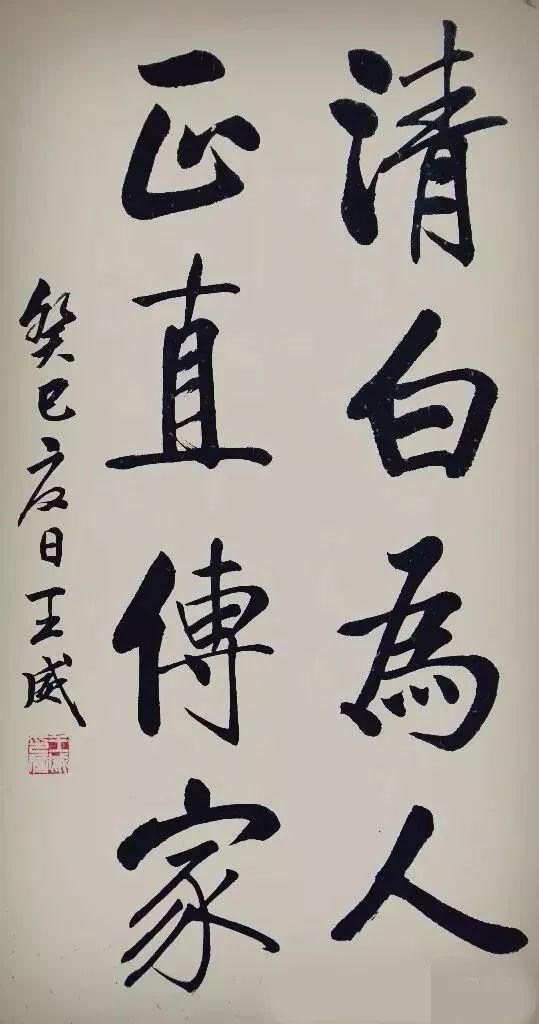 清白為人
正直傳家
癸巳夏日王威